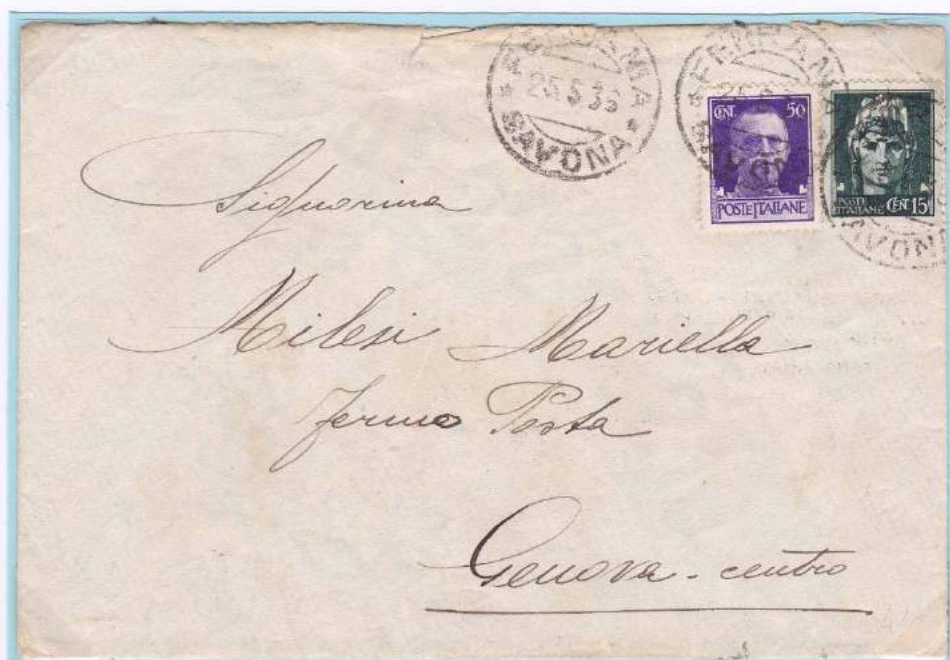 FERRANIA
25.5.36
SAVONA
FERRANIA
SAVONA
CENT 50
POSTE ITALIANE
POSTE
ITALIANE CENT 15
AVONA
Signorina
Milesi Mariella
fermo Posta
Genova - centro